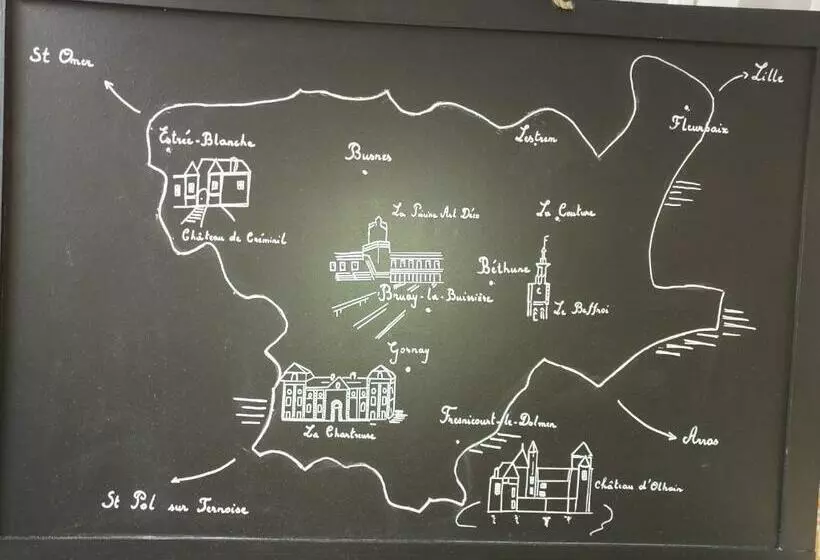 St Omer
Lille
Fleurbaix
Estrée-Blanche
Lestrem
Busnes
La Piscine Art Déco
La Couture
Château de Créminil
Béthune
Bruay-la-Buissière
Le Beffroi
Gosnay
La Chartreuse
Fresnicourt-le-Dolmen
Arras
Château d'Olhain
St Pol sur Ternoise